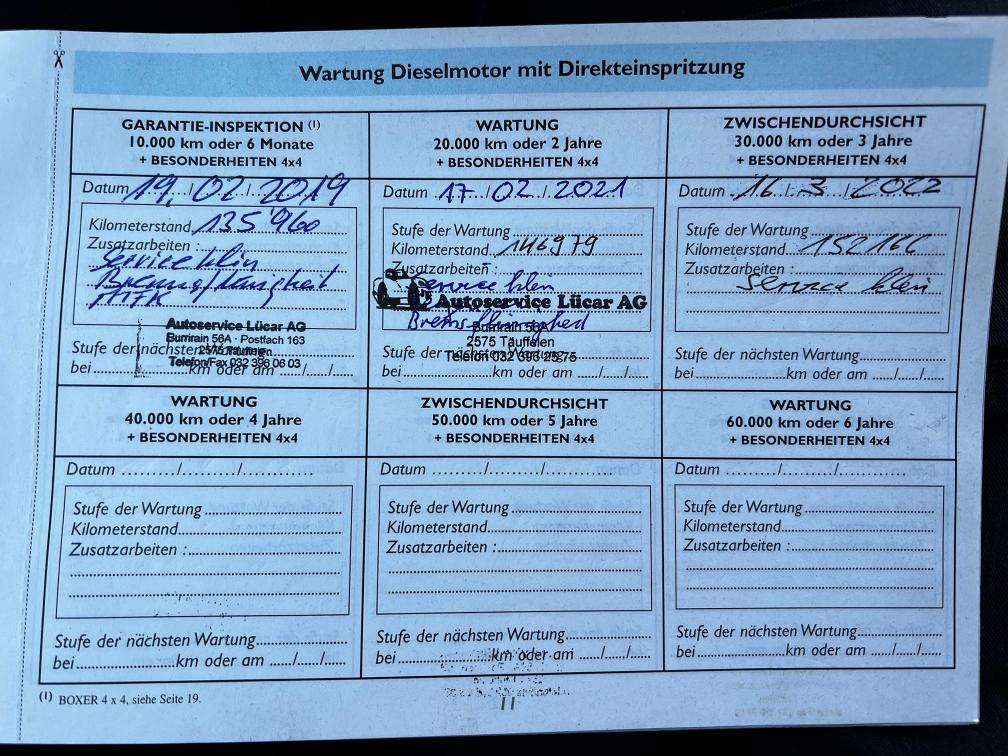 Wartung Dieselmotor mit Direkteinspritzung
GARANTIE-INSPEKTION (1)
10.000 km oder 6 Monate
+ BESONDERHEITEN 4x4
Datum 19./02./2019
Kilometerstand 135'960
Zusatzarbeiten :
Service klein
Bremsflüssigkeit
MFK
Autoservice Lücar AG
Burrirain 56A · Postfach 163
2575 Täuffelen
Telefon/Fax 032 396 06 03
Stufe der nächsten Wartung
bei km oder am ....../....../......
WARTUNG
20.000 km oder 2 Jahre
+ BESONDERHEITEN 4x4
Datum 17./02./2021
Stufe der Wartung
Kilometerstand 146979
Zusatzarbeiten :
Service klein
Autoservice Lücar AG
Bremsflüssigkeit
Burrirain 56A
2575 Täuffelen
Stufe der nächsten Wartung
Telefon 032 396 25 75
bei km oder am ....../....../......
ZWISCHENDURCHSICHT
30.000 km oder 3 Jahre
+ BESONDERHEITEN 4x4
Datum 16./3./2022
Stufe der Wartung
Kilometerstand
Zusatzarbeiten :
Service klein
Stufe der nächsten Wartung
bei km oder am ....../....../......
WARTUNG
40.000 km oder 4 Jahre
+ BESONDERHEITEN 4x4
Datum ........./........./.........
Stufe der Wartung
Kilometerstand
Zusatzarbeiten :
Stufe der nächsten Wartung
bei km oder am ....../....../......
ZWISCHENDURCHSICHT
50.000 km oder 5 Jahre
+ BESONDERHEITEN 4x4
Datum ........./........./.........
Stufe der Wartung
Kilometerstand
Zusatzarbeiten :
Stufe der nächsten Wartung
bei km oder am ....../....../......
WARTUNG
60.000 km oder 6 Jahre
+ BESONDERHEITEN 4x4
Datum ........./........./.........
Stufe der Wartung
Kilometerstand
Zusatzarbeiten :
Stufe der nächsten Wartung
bei km oder am ....../....../......
(1) BOXER 4 x 4, siehe Seite 19.
11